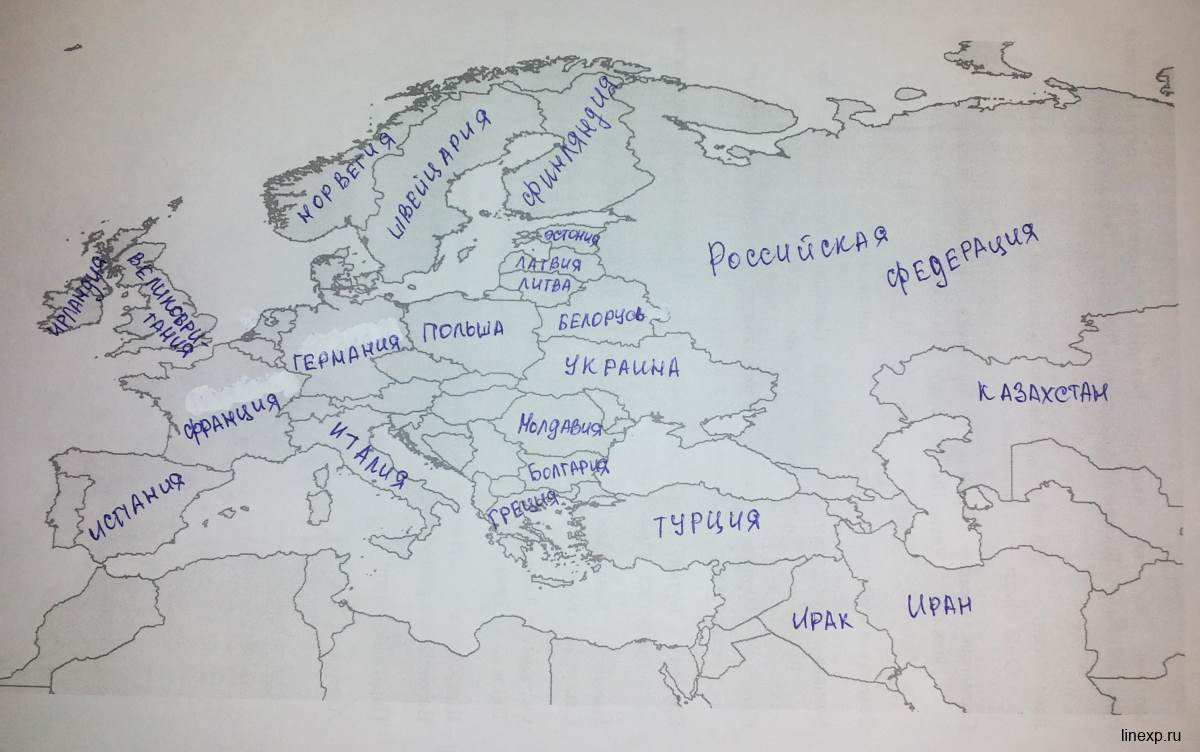 НОРВЕГИЯ
ШВЕЙЦАРИЯ
ФИНЛЯНДИЯ
ЭСТОНИЯ
ЛАТВИЯ
ЛИТВА
РОССИЙСКАЯ
ФЕДЕРАЦИЯ
ИРЛАНДИЯ
ВЕЛИКОБРИ-
ТАНИЯ
ГЕРМАНИЯ
ПОЛЬША
БЕЛОРЦОВ
УКРАИНА
КАЗАХСТАН
ФРАНЦИЯ
ИТАЛИЯ
МОЛДАВИЯ
БОЛГАРИЯ
ИСПАНИЯ
ГРЕЦИЯ
ТУРЦИЯ
ИРАК
ИРАН
linexp.ru